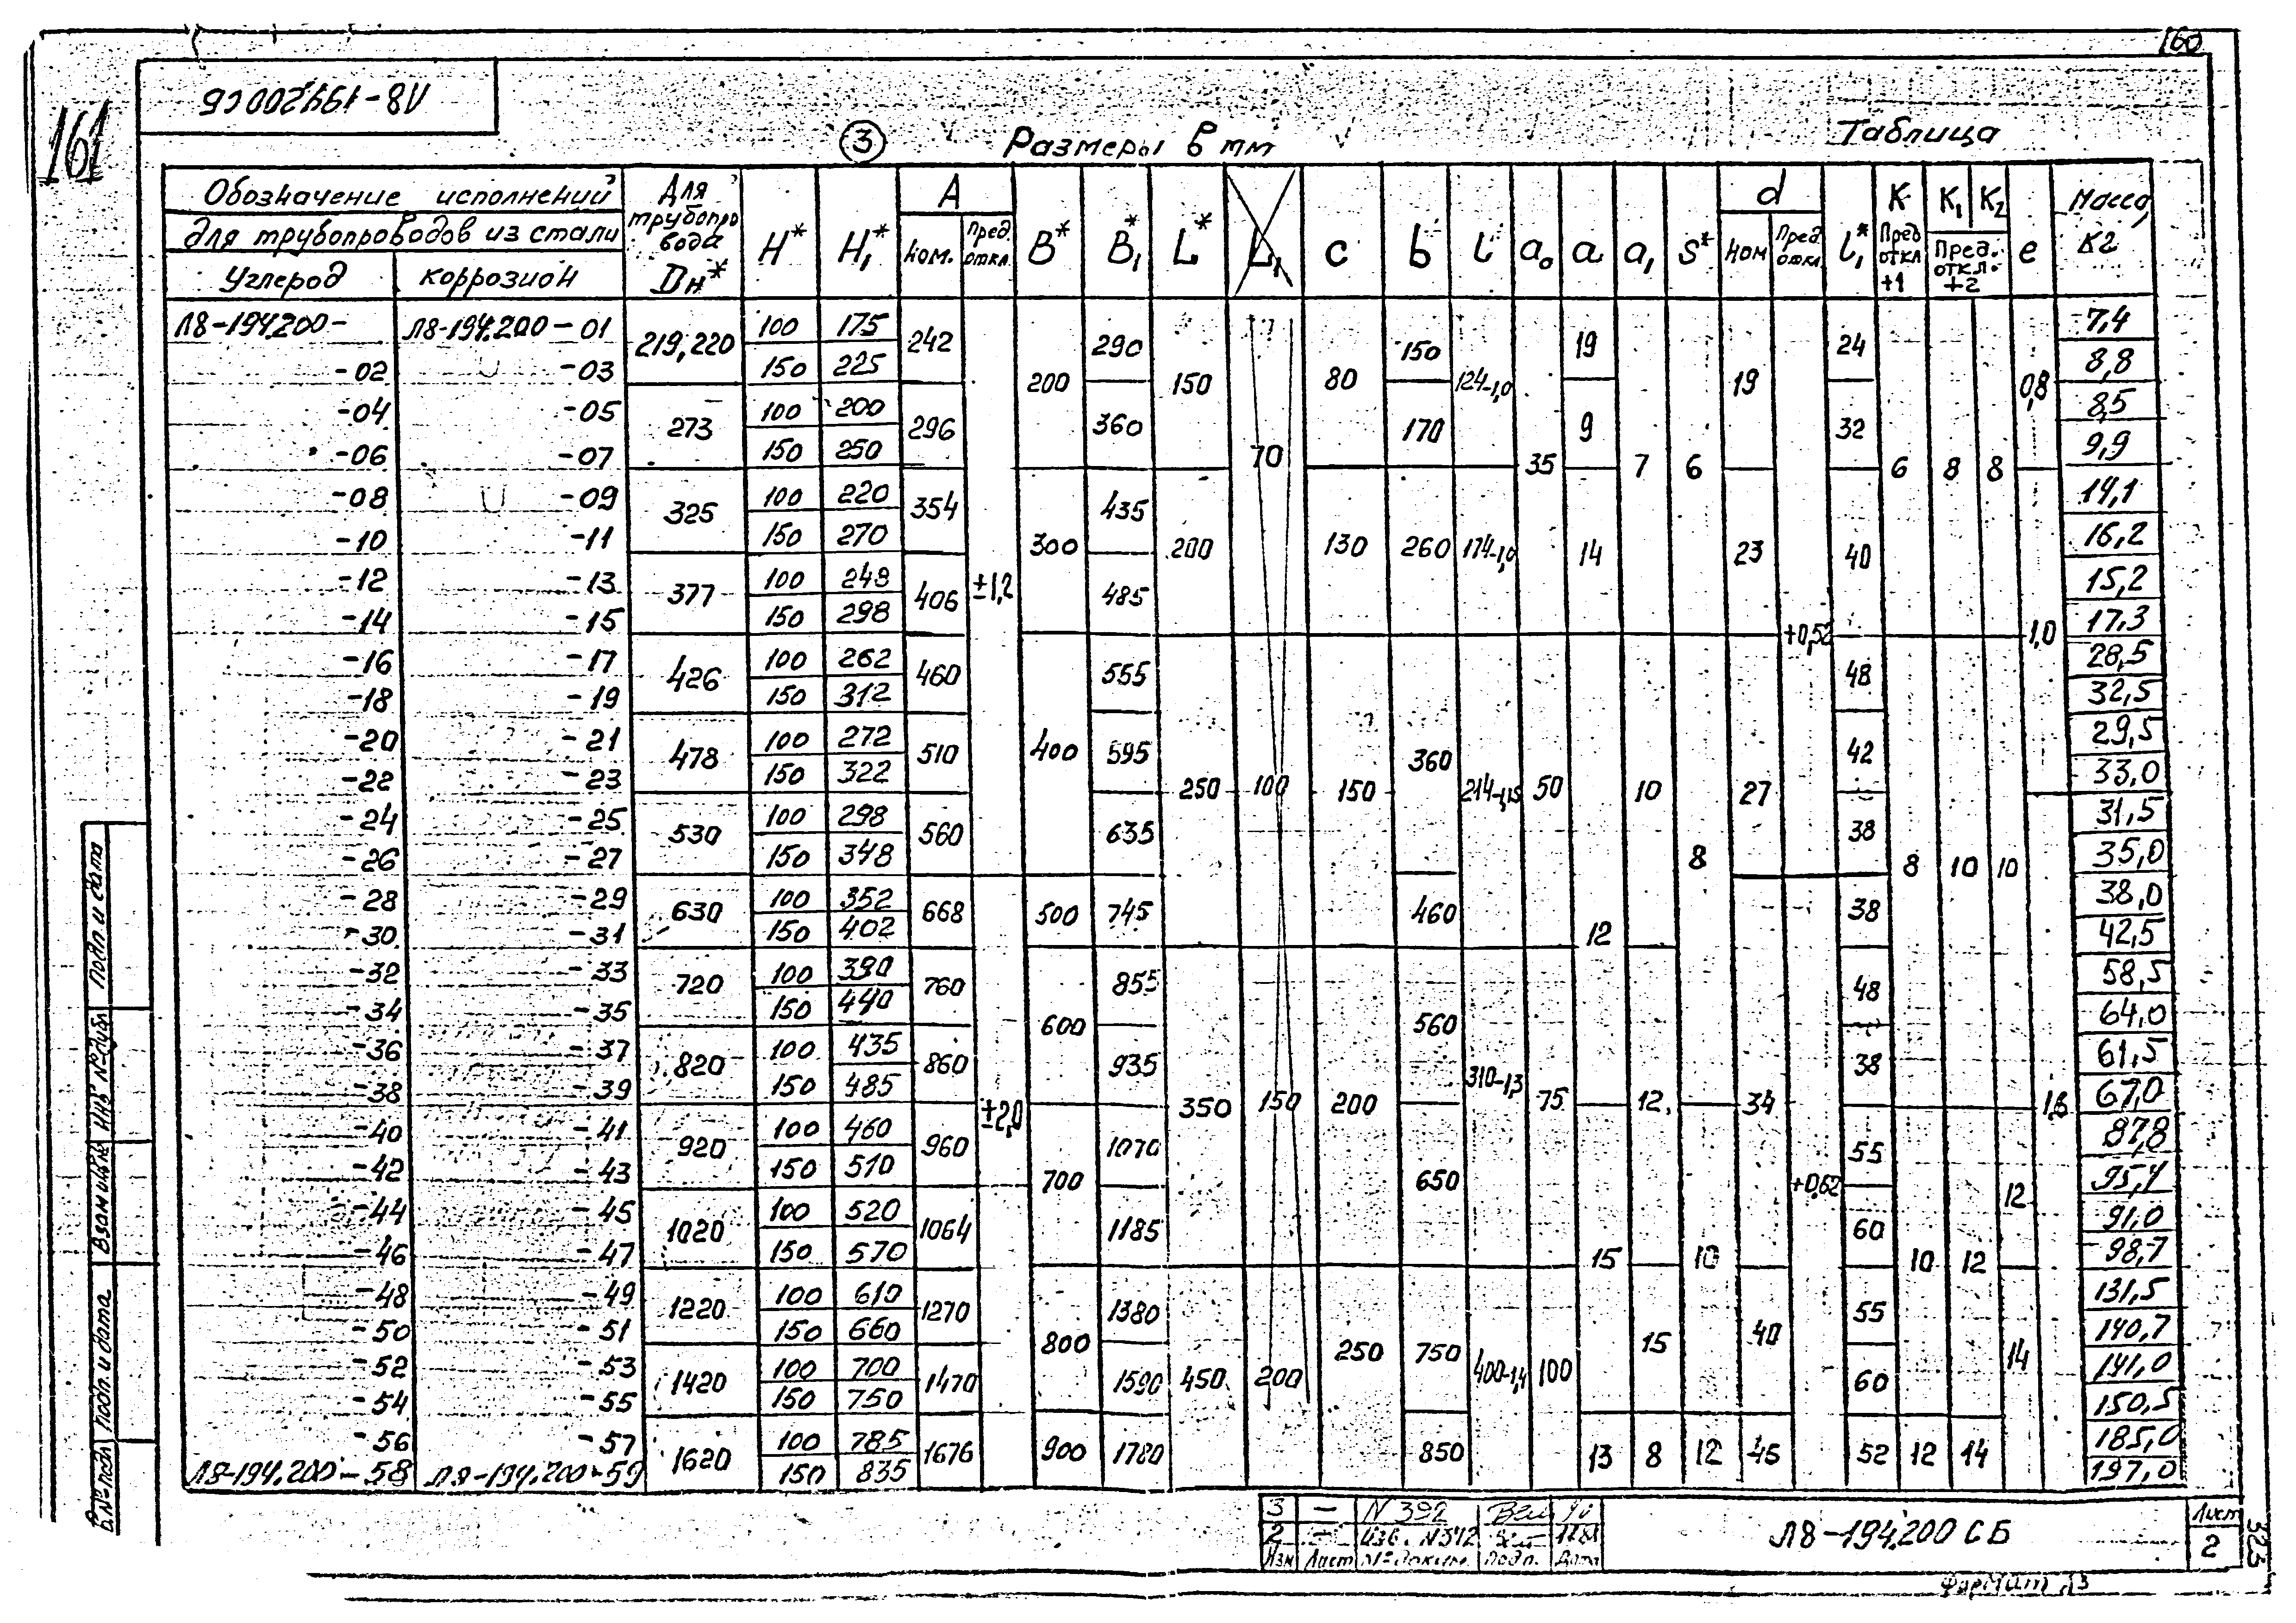 160
161
Л8-194.200СБ
3 Размеры в мм Таблица
Обозначение исполнений
для трубопроводов из стали
Углерод коррозион
Для трубопровода Dн*
H* H₁* A ном. Пред. откл. B* B₁* L* L₁ c b l a₀ a a₁ S* d ном Пред. откл. l₁* K Пред откл +1 K₁ K₂ Пред. откл. +2 e Масса, кг
Л8-194.200- Л8-194.200-01 219,220 100 175 242 290 150 19 24 7,4
-02 -03 150 225 200 150 80 124-1,0 19 0,8 8,8
-04 -05 273 100 200 296 360 170 9 32 8,5
-06 -07 150 250 70 35 7 6 6 8 8 9,9
-08 -09 325 100 220 354 435 14,1
-10 -11 150 270 300 200 130 260 174-1,0 14 23 40 16,2
-12 -13 377 100 248 406 ±1,2 485 15,2
-14 -15 150 298 +0,52 1,0 17,3
-16 -17 426 100 262 460 555 48 28,5
-18 -19 150 312 32,5
-20 -21 478 100 272 510 400 595 360 42 29,5
-22 -23 150 322 250 100 150 214-1,15 50 10 27 33,0
-24 -25 530 100 298 560 635 38 31,5
-26 -27 150 348 8 8 10 10 35,0
-28 -29 630 100 352 668 500 745 460 38 38,0
-30 -31 150 402 12 42,5
-32 -33 720 100 390 760 855 48 58,5
-34 -35 150 440 600 560 64,0
-36 -37 820 100 435 860 935 38 61,5
-38 -39 150 485 310-1,3 67,0
-40 -41 920 100 460 960 ±2,0 350 150 200 75 12 34 87,8
-42 -43 150 510 700 1070 650 55 +0,62 12 95,4
-44 -45 1020 100 520 1064 1185 60 91,0
-46 -47 150 570 15 10 10 12 98,7
-48 -49 1220 100 610 1270 1380 55 131,5
-50 -51 150 660 800 250 750 15 40 140,7
-52 -53 1420 100 700 1470 1590 450 200 400-1,4 100 60 14 141,0
-54 -55 150 750 150,5
-56 -57 1620 100 785 1676 900 1780 850 13 8 12 45 52 12 14 185,0
Л8-194.200-58 Л8-194.200-59 150 835 197,0
Подп. и дата
Инв № дубл
Взам инв №
Подп. и дата
№ подл
3 — N 392
2 — Изв. N 572
Изм Лист № докум. Подп. Дата
Л8-194.200 СБ
Лист
2
323
Формат А3